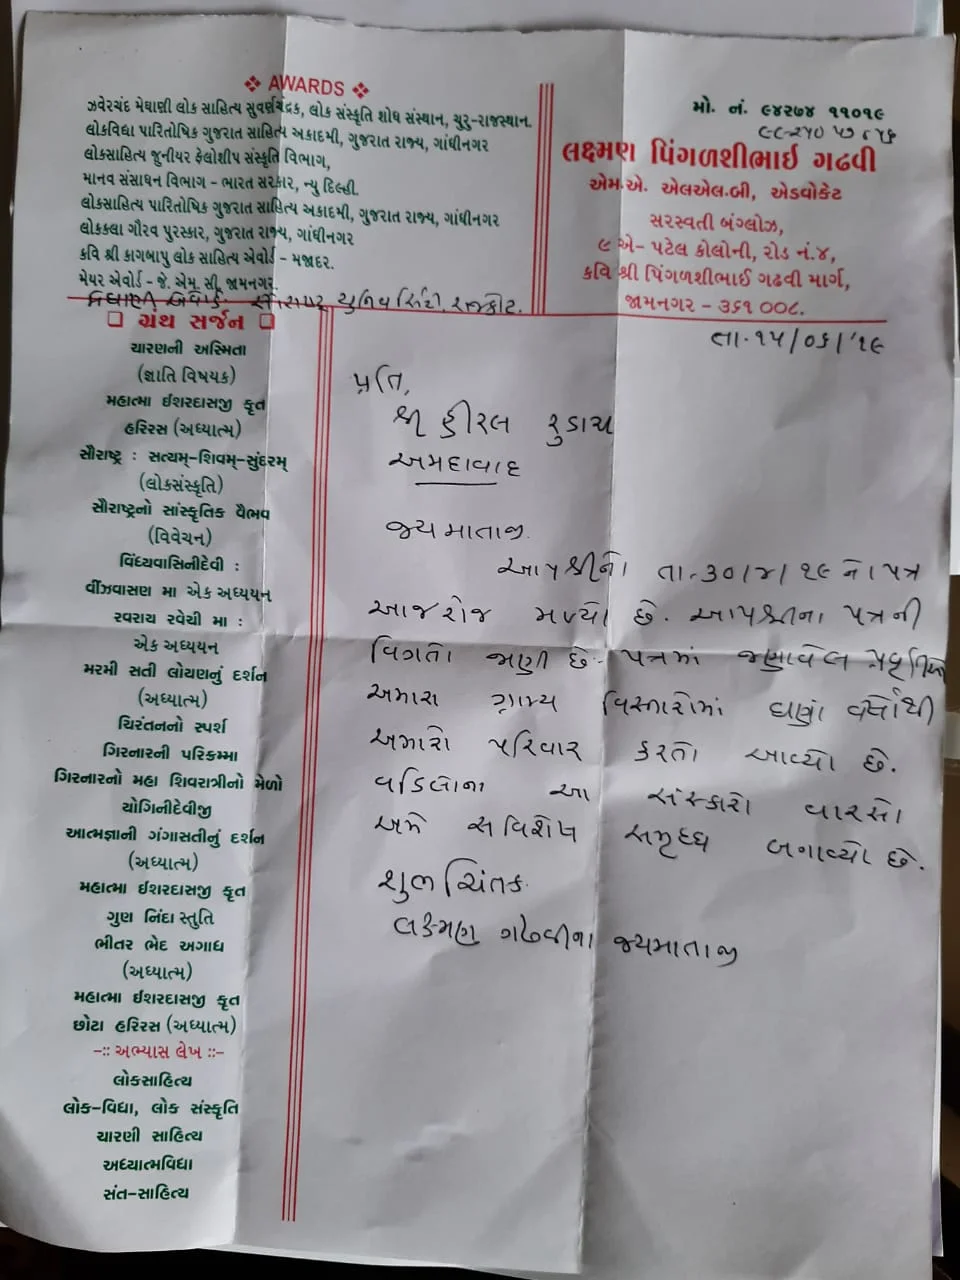 ❖ AWARDS ❖
ઝવેરચંદ મેઘાણી લોક સાહિત્ય સુવર્ણચંદ્રક, લોક સંસ્કૃતિ શોધ સંસ્થાન, ચુરુ-રાજસ્થાન.
લોકવિદ્યા પારિતોષિક ગુજરાત સાહિત્ય અકાદમી, ગુજરાત રાજ્ય, ગાંધીનગર
લોકસાહિત્ય જુનીયર ફેલોશીપ સંસ્કૃતિ વિભાગ,
માનવ સંસાધન વિભાગ - ભારત સરકાર, ન્યુ દિલ્હી.
લોકસાહિત્ય પારિતોષિક ગુજરાત સાહિત્ય અકાદમી, ગુજરાત રાજ્ય, ગાંધીનગર
લોકકલા ગૌરવ પુરસ્કાર, ગુજરાત રાજ્ય, ગાંધીનગર
કવિ શ્રી કાગબાપુ લોક સાહિત્ય એવોર્ડ - મજાદર.
મેયર એવોર્ડ - જે. એમ. સી. જામનગર.
મેઘાણી એવોર્ડ - સૌરાષ્ટ્ર યુનિવર્સિટી. રાજકોટ.
મો. નં. ૯૪૨૭૪ ૧૧૦૧૯
લક્ષ્મણ પિંગળશીભાઈ ગઢવી
એમ.એ. એલએલ.બી, એડવોકેટ
સરસ્વતી બંગ્લોઝ,
૯ એ- પટેલ કોલોની, રોડ નં.૪,
કવિ શ્રી પિંગળશીભાઈ ગઢવી માર્ગ,
જામનગર - ૩૬૧ ૦૦૮.
❑ ગ્રંથ સર્જન ❑
ચારણની અસ્મિતા
(જ્ઞાતિ વિષયક)
મહાત્મા ઈશરદાસજી કૃત
હરિરસ (અધ્યાત્મ)
સૌરાષ્ટ્ર : સત્યમ્-શિવમ્-સુંદરમ્
(લોકસંસ્કૃતિ)
સૌરાષ્ટ્રનો સાંસ્કૃતિક વૈભવ
(વિવેચન)
વિંધ્યવાસિનીદેવી :
વીંઝવાસણ મા એક અધ્યયન
રવરાય રવેચી મા :
એક અધ્યયન
મરમી સતી લોયણનું દર્શન
(અધ્યાત્મ)
ચિરંતનનો સ્પર્શ
ગિરનારની પરિકમ્મા
ગિરનારનો મહા શિવરાત્રીનો મેળો
યોગિનીદેવીજી
આત્મજ્ઞાની ગંગાસતીનું દર્શન
(અધ્યાત્મ)
મહાત્મા ઈશરદાસજી કૃત
ગુણ નિંદા સ્તુતિ
ભીતર ભેદ અગાધ
(અધ્યાત્મ)
મહાત્મા ઈશરદાસજી કૃત
છોટા હરિરસ (અધ્યાત્મ)
-:: અભ્યાસ લેખ ::-
લોકસાહિત્ય
લોક-વિદ્યા, લોક સંસ્કૃતિ
ચારણી સાહિત્ય
અધ્યાત્મવિદ્યા
સંત-સાહિત્ય
તા. ૧૫/૦૬/'૧૯
પ્રતિ,
શ્રી હીરલ રુડાચ
અમદાવાદ
જય માતાજી.
આપશ્રીનો તા. ૩૦/૪/૧૯ નો પત્ર
આજ રોજ મળ્યો છે. આપશ્રીના પત્રની
વિગતો જાણી છે. પત્રમાં જણાવેલ પ્રવૃત્તિઓ
અમારા ગ્રામ્ય વિસ્તારોમાં ઘણાં વર્ષોથી
અમારો પરિવાર કરતો આવ્યો છે.
વડિલોના આ સંસ્કારો વારસો
અમે સવિશેષ સમૃધ્ધ બનાવ્યો છે.
શુભ ચિંતક
લક્ષ્મણ ગઢવીના જયમાતાજી